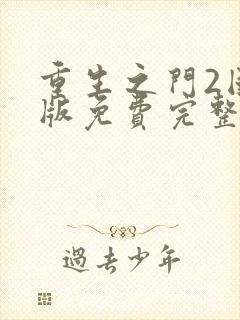 重生之門2
版免費完整
過去少年